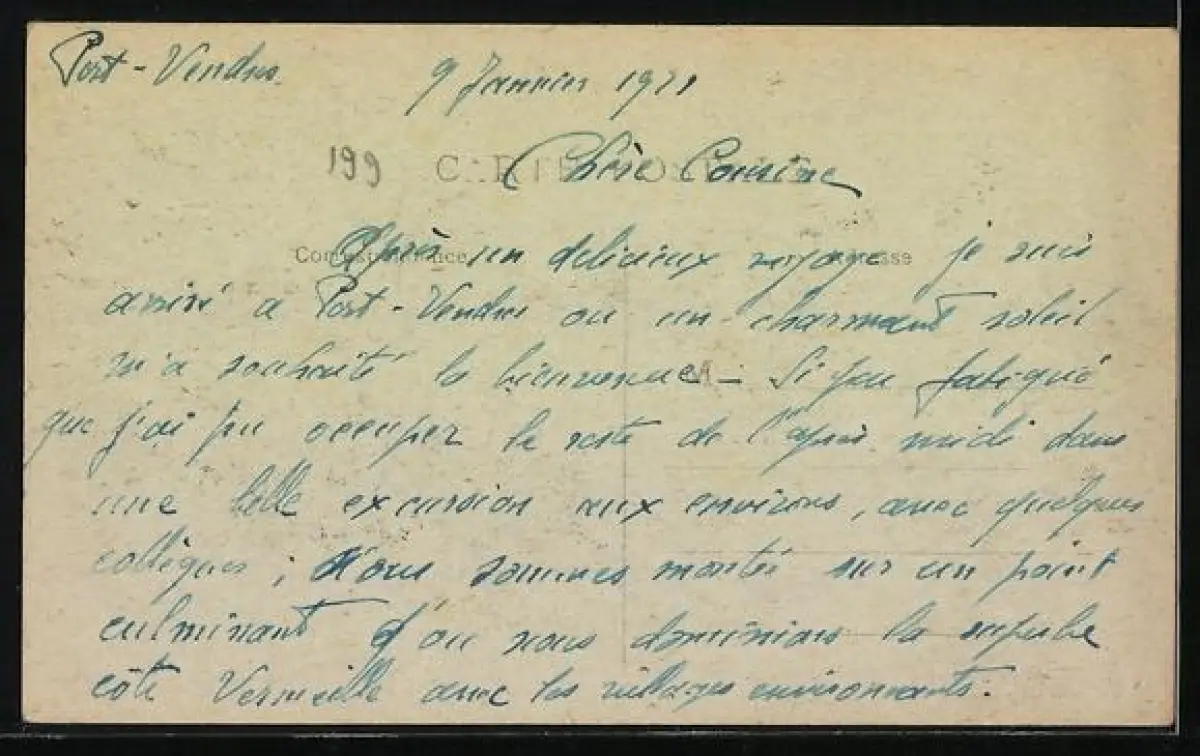 Port-Vendres. 9 Janvier 1921
199
CARTE
Chère Cousine
Correspondance
Après un delicieux voyage je suis
arrivé a Port-Vendres ou un charmant soleil
m'a souhaité la bienvenue - Si peu fatigué
que j'ai pu occuper le reste de l'après midi dans
une belle excursion aux environs, avec quelques
collègues ; Nous sommes montés sur un point
culminant d'ou nous dominions la superbe
côte Vermeille avec les villages environnants.